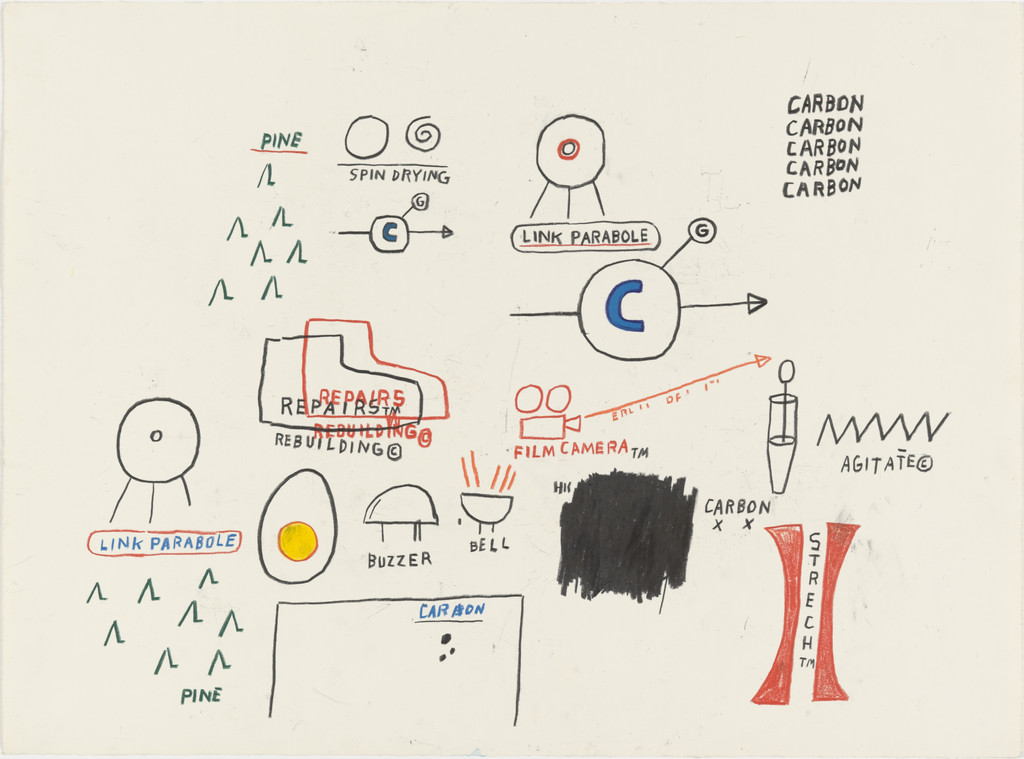 CARBON
CARBON
CARBON
CARBON
CARBON
PINE
SPIN DRYING
G
C
LINK PARABOLE
G
C
REPAIRS
REPAIRS™
REBUILDING©
REBUILDING©
FILM CAMERA™
AGITATE©
LINK PARABOLE
BUZZER
BELL
CARBON
X X
STRECH™
CARBON
PINE